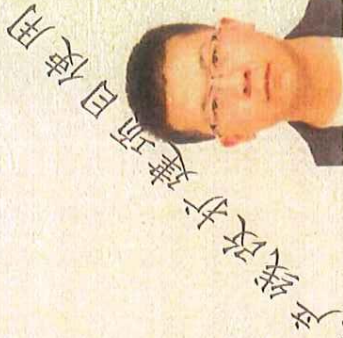 产线改扩建项目使用